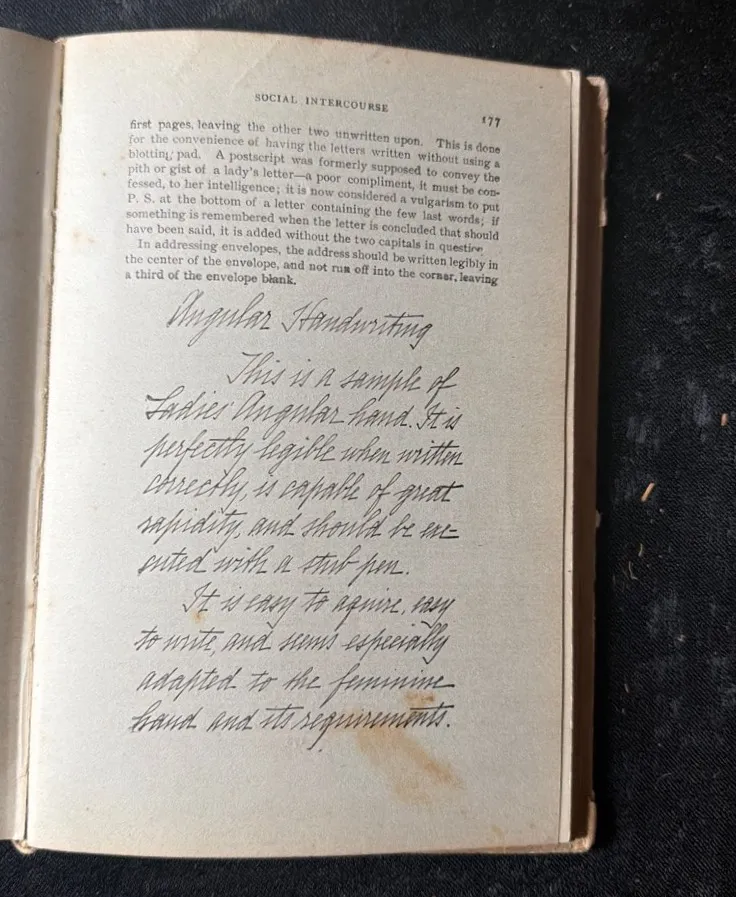 SOCIAL INTERCOURSE 177
first pages, leaving the other two unwritten upon. This is done
for the convenience of having the letters written without using a
blotting pad. A postscript was formerly supposed to convey the
pith or gist of a lady's letter—a poor compliment, it must be con-
fessed, to her intelligence; it is now considered a vulgarism to put
P. S. at the bottom of a letter containing the few last words; if
something is remembered when the letter is concluded that should
have been said, it is added without the two capitals in question
In addressing envelopes, the address should be written legibly in
the center of the envelope, and not run off into the corner, leaving
a third of the envelope blank.
Angular Handwriting
This is a sample of
Ladies' Angular hand. It is
perfectly legible when written
correctly, is capable of great
rapidity, and should be exe-
cuted with a stub pen.
It is easy to aquire, easy
to write, and seems especially
adapted to the feminine
hand and its requirements.